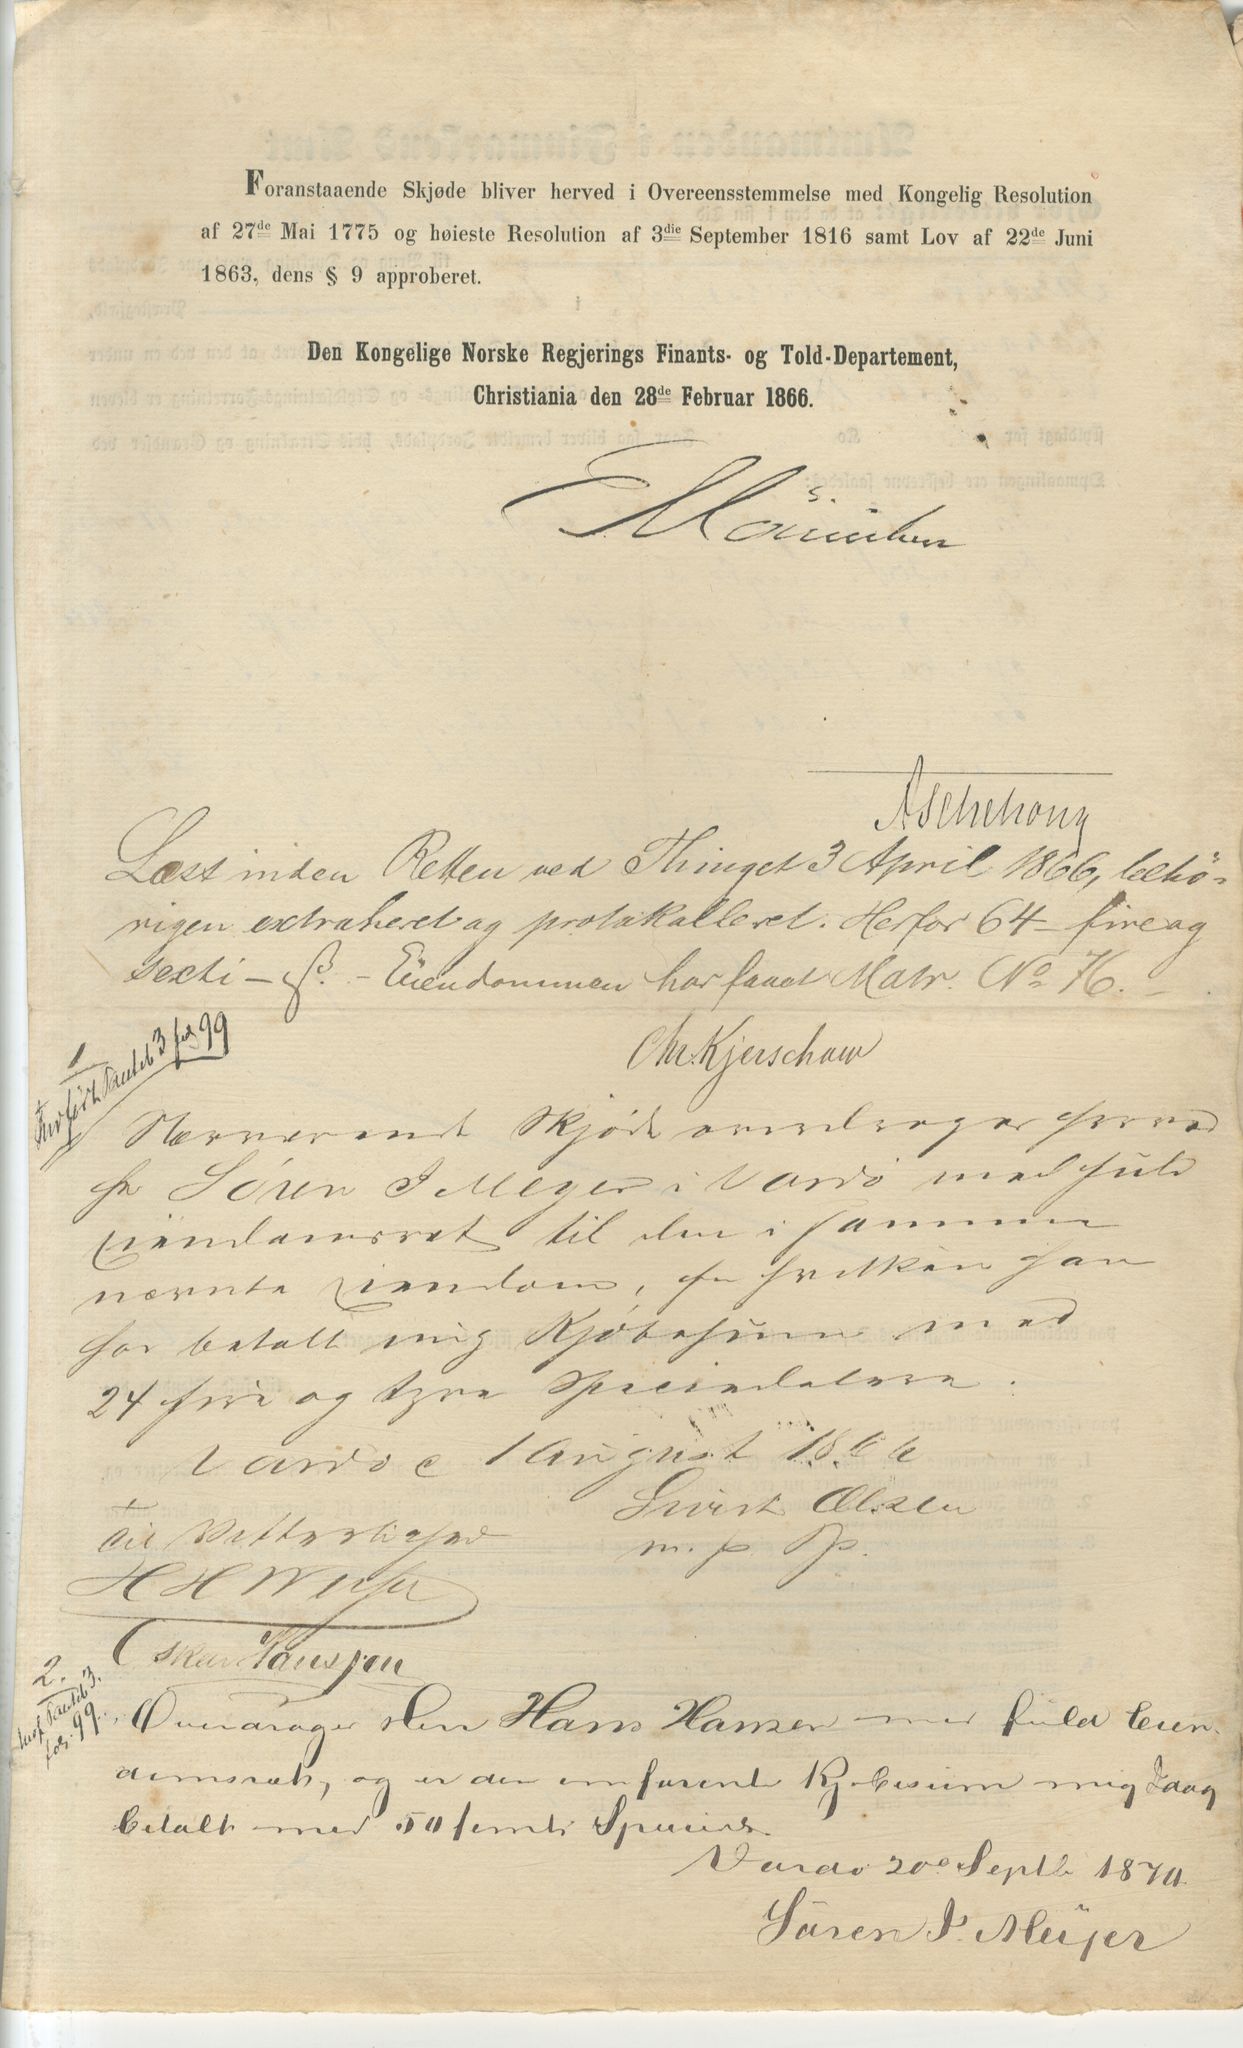 Foranstaaende Skjøde bliver herved i Overeensstemmelse med Kongelig Resolution
af 27de Mai 1775 og høieste Resolution af 3die September 1816 samt Lov af 22de Juni
1863, dens § 9 approberet.
Den Kongelige Norske Regjerings Finants- og Told-Departement,
Christiania den 28de Februar 1866.
Aschehoug
Læst inden Retten ved Thinget 3 April 1866, behö-
rigen extraheret og protokolleret. Herfor 64 - fire og
sexti - ß. - Eiendommen har faaet Matr. No 76. -
Chr. Kjerschow
1
Nærværende Skjøde overdrages herved
hr Sören I Meyer i Vardö med fuld
Eiendomsret til den i samme
nævnte Eiendom, for hvilken han
har betalt mig Kjöbesum med
24 fire og tyve Speciedalere.
Vardö e 1 August 1866
Sivert Olsen
m. p. P.
Til Vitterlighed
H H
Oskar Hansen
2.
fol. 99.
Overdrages den Hans Hansen med fuld Eien-
domsret, og er den omforente Kjöbesum mig Idag
betalt med 50 femti Species.
Vardö 20e Septb 1870
Sören I. Meijer